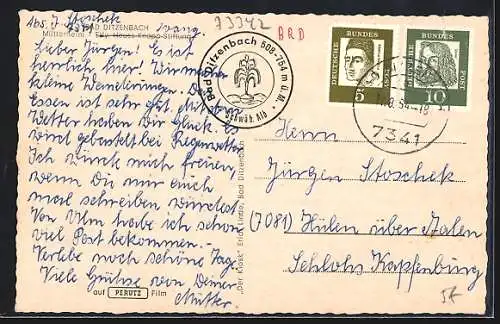 Abs. J. Stoschek
73342
BRD
BAD DITZENBACH
Müttererholungsheim
Evang.
Elly-Heuss-Knapp-Stiftung
Lieber Jürgen! Es ist
herrlich hier! Wir machen
kleine Wanderungen. Das
Essen ist sehr gut. Mit dem
Wetter haben wir Glück. Es
wird gebastelt bei Regenwetter.
Ich würde mich freuen,
wenn Du mir auch
mal schreiben würdest.
Von Ulm habe ich schon
viel Post bekommen.-
Verlebe noch schöne Tage.
Viele Grüße von Deiner
Mutter.
auf PERUTZ Film
"Der Kiosk" Erich Linde, Bad Ditzenbach
Bad Ditzenbach 508-764 m ü. M.
Schwäb. Alb
DEUTSCHE BUNDESPOST
5
DEUTSCHE BUNDESPOST
10
7341
Herrn
Jürgen Stoschek
(7081) Hülen über Aalen
Schloß Kapfenburg